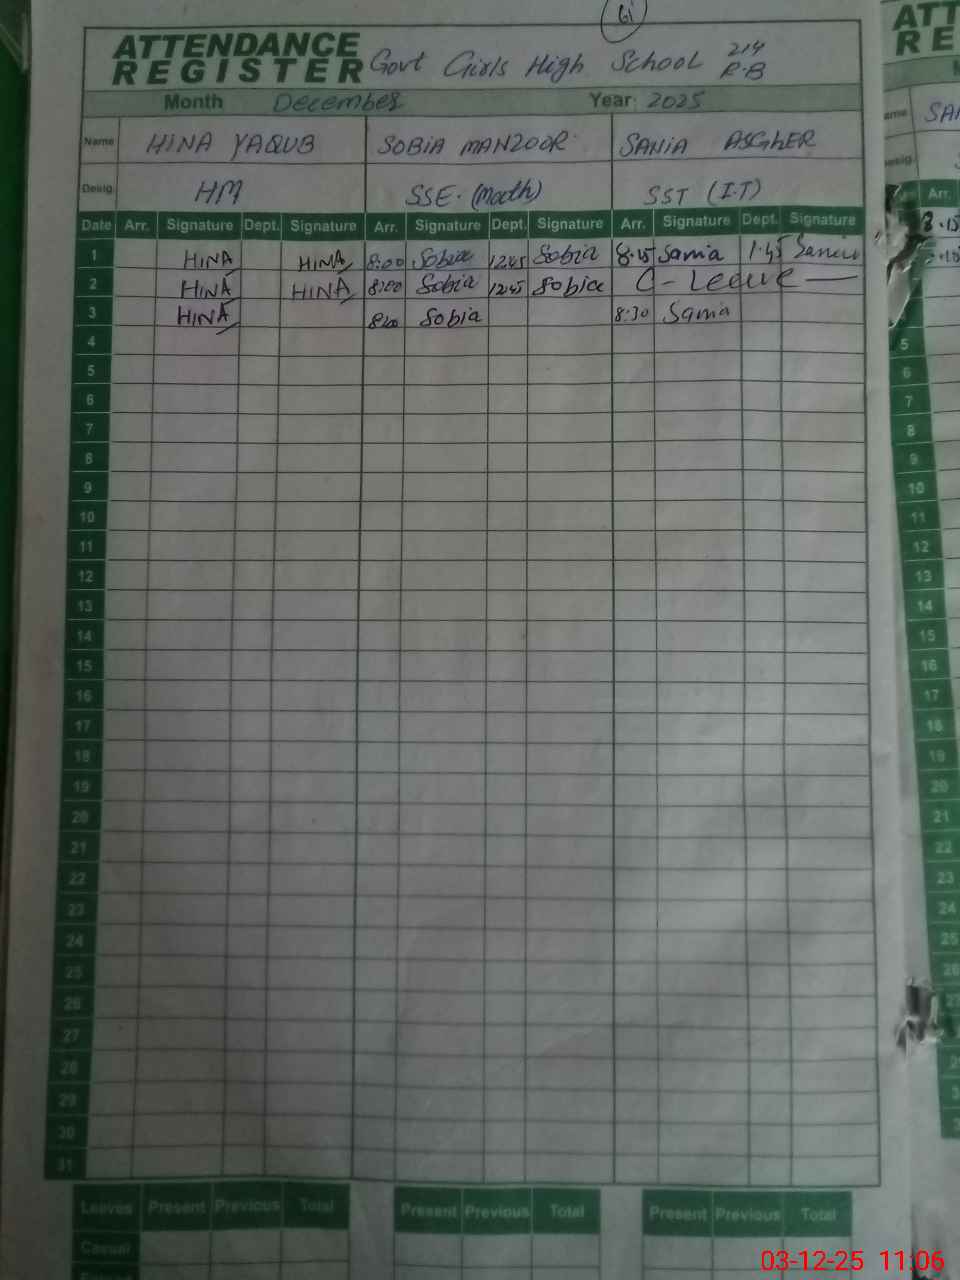 61
ATTENDANCE
REGISTER Govt Girls High School 214 R-B
Month December Year: 2025
Name HINA YAQUB SOBIA MANZOOR SANIA ASGHER
Desig. HM SSE. (Math) SST (I.T)
Date Arr. Signature Dept. Signature Arr. Signature Dept. Signature Arr. Signature Dept. Signature
1 HINA HINA 8:00 Sobia 12:45 Sobia 8:15 Sania 1:45 Sania
2 HINA HINA 8:00 Sobia 12:45 Sobia C-Leave
3 HINA 8:00 Sobia 8:30 Sania
4
5
6
7
8
9
10
11
12
13
14
15
16
17
18
19
20
21
22
23
24
25
26
27
28
29
30
31
Leaves Present Previous Total Present Previous Total Present Previous Total
Casual
ATT
RE
SAN
Arr.
8:15
5
6
7
8
9
10
11
12
13
14
15
16
17
18
19
20
21
22
23
24
25
26
27
03-12-25 11:06